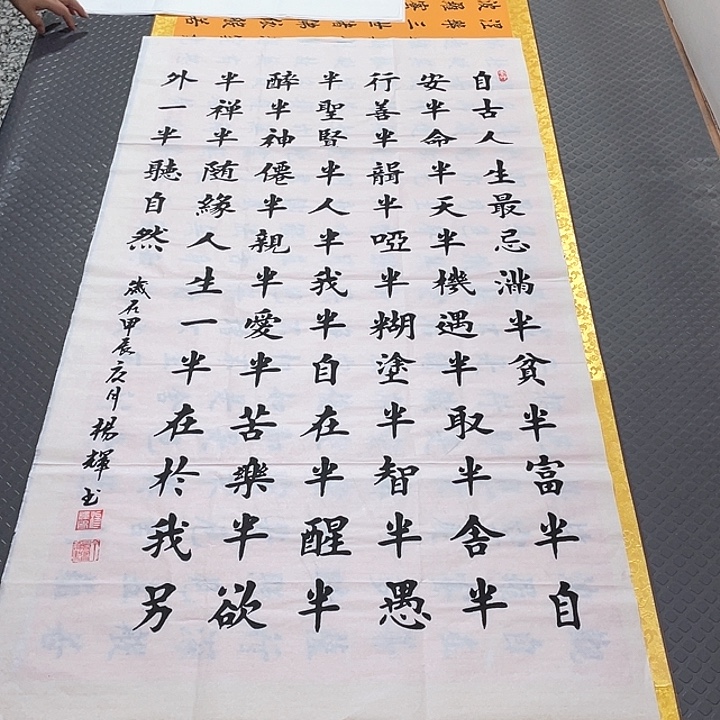 自古人生最忌滿半貧半富半自
安半命半天半機遇半取半舍半
行善半半啞半糊塗半智半愚
半聖賢半人半我半自在半醒半
醉半神僊半親半愛半苦樂半欲
半禅半随緣人生一半在於我另
外一半聽自然
歲在甲辰月楊輝书
涅槃三世諸佛
波羅蜜